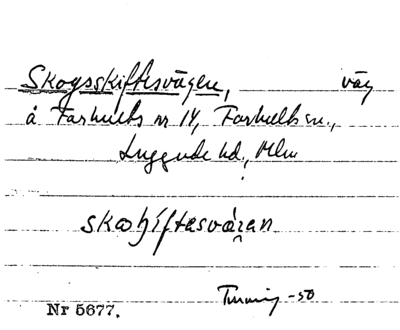 Skogsskiftesvägen, väg
å Farhults nr 14, Farhults sn.,
Luggude hd., Mlm
skoʃiftesvä́ʒan
Nr 5677. -50